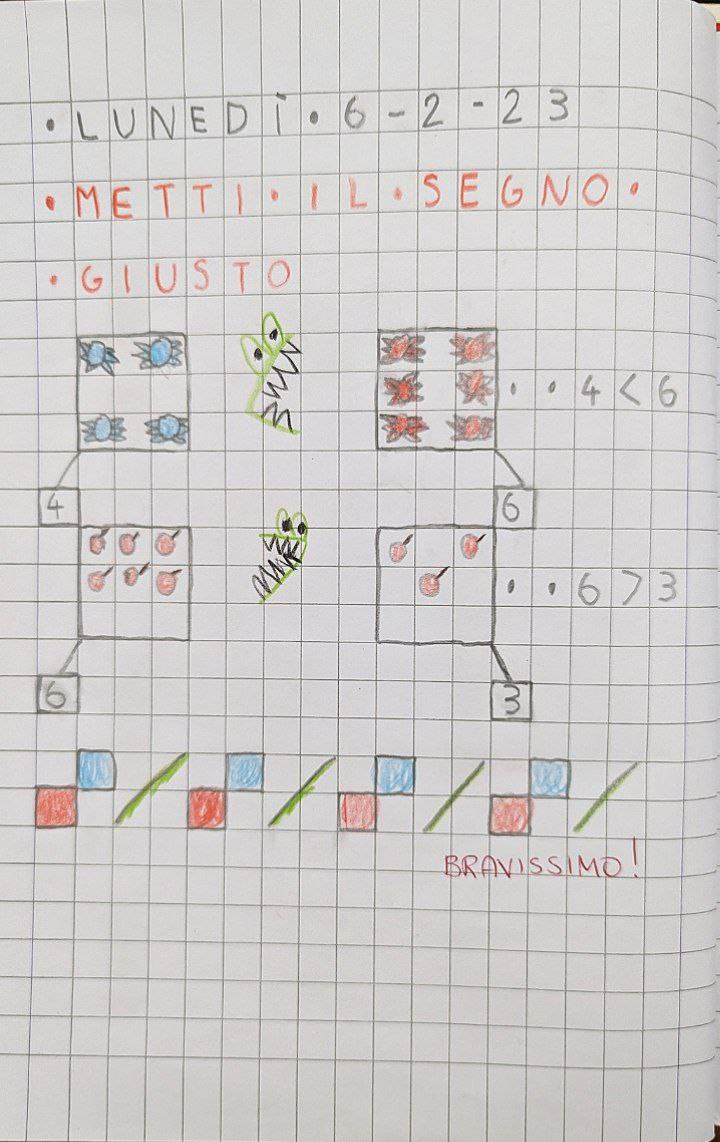 • LUNEDÌ • 6 - 2 - 23
• METTI • IL • SEGNO •
• GIUSTO
• • 4 < 6
4
6
• • 6 > 3
6
3
BRAVISSIMO!